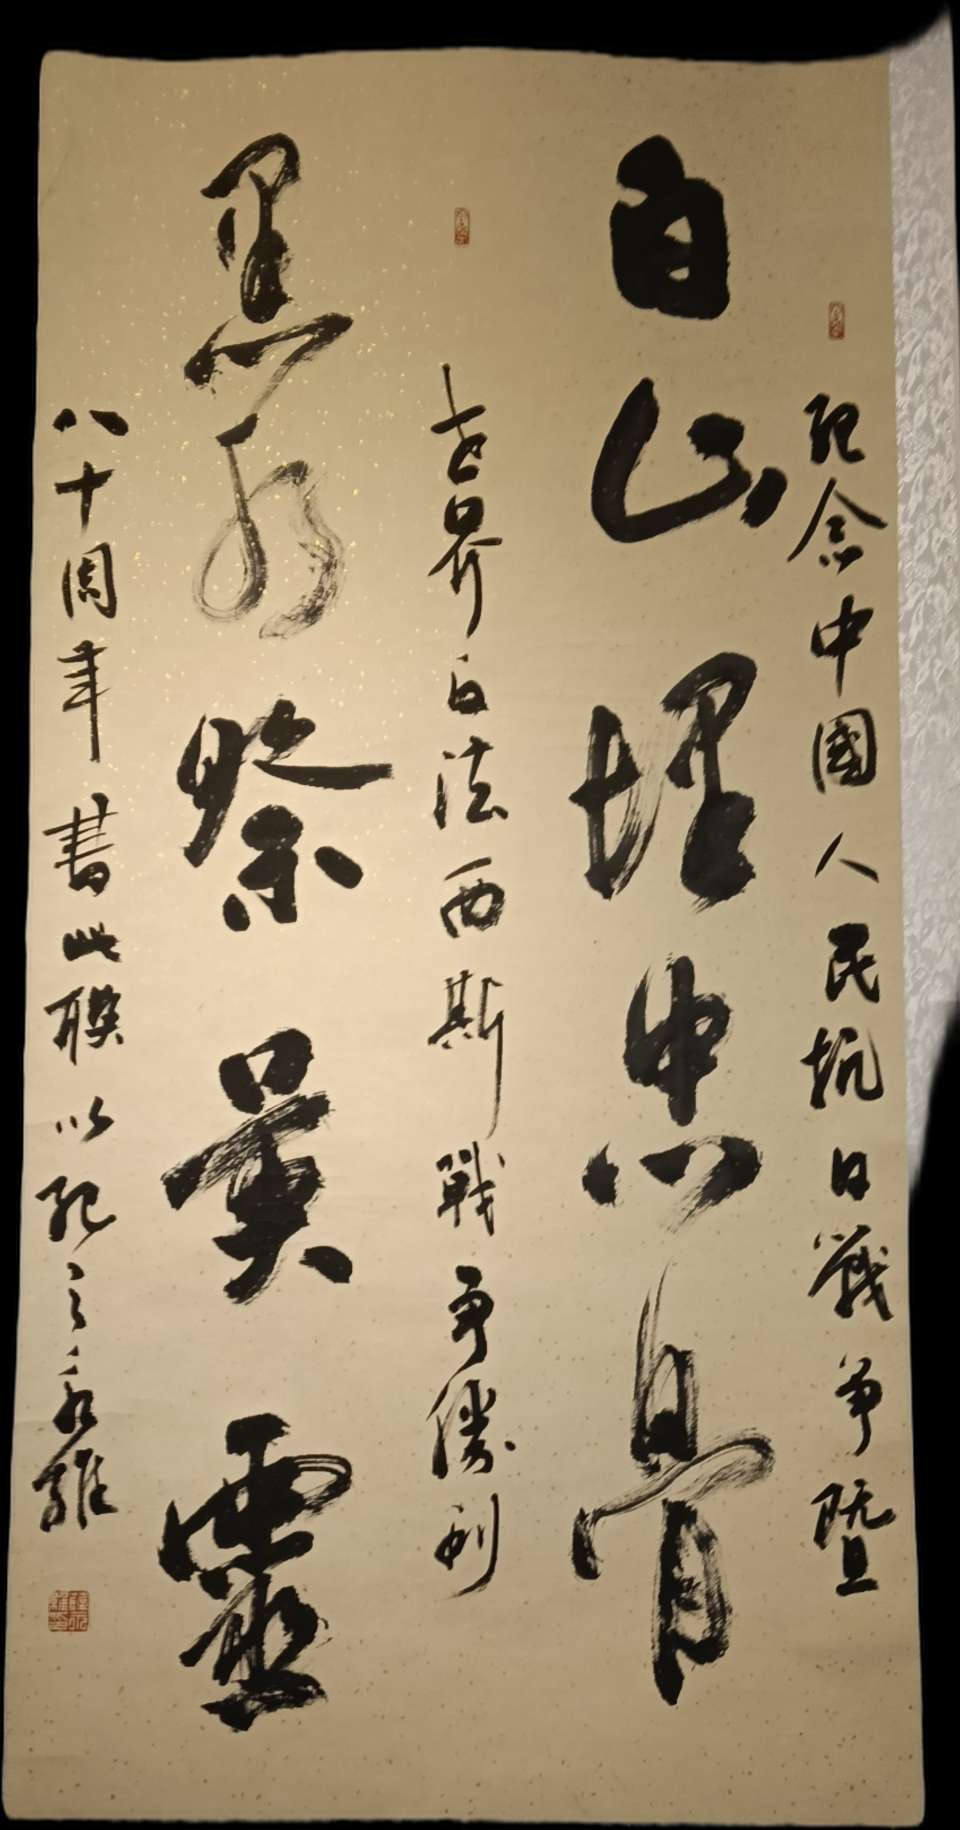 紀念中國人民抗日戰争暨
白山埋忠骨
世界反法西斯戰争勝利
黑水祭英靈
八十周年書此聯以紀之永